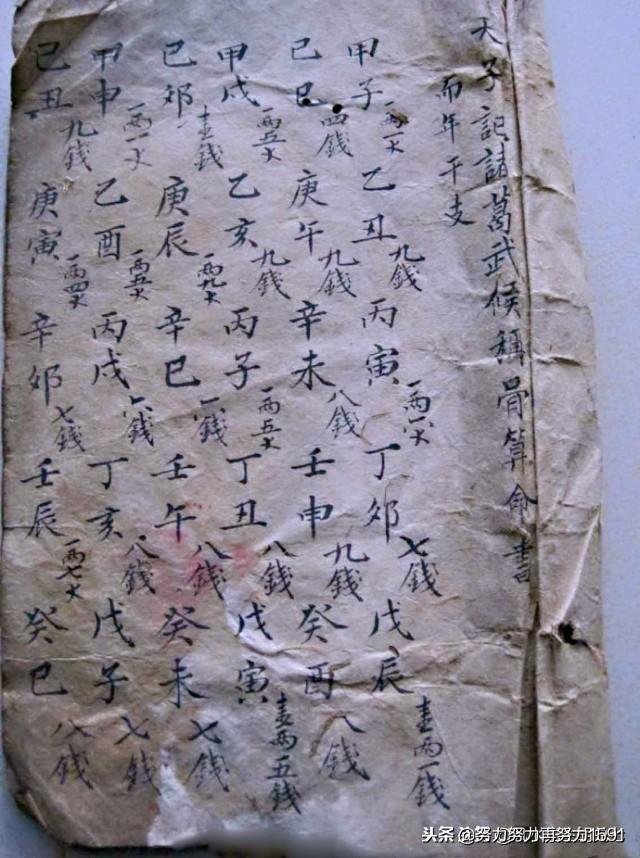 天子記諸葛武候稱骨算命書
而年干支
甲子 一両一大 乙丑 九錢 丙寅 一両八大 丁卯 七錢 戊辰 壹両一錢
己巳 四錢 庚午 九錢 辛未 八錢 壬申 九錢 癸酉 八錢
甲戌 一両五大 乙亥 九錢 丙子 一両五大 丁丑 八錢 戊寅 壹両五錢
己卯 壹錢 庚辰 一両九大 辛巳 錢 壬午 八錢 癸未 七錢
甲申 一両一大 乙酉 一両五大 丙戌 六錢 丁亥 八錢 戊子 七錢
己丑 九錢 庚寅 一両四大 辛卯 七錢 壬辰 一両七大 癸巳 八錢
头条 @努力努力再努力